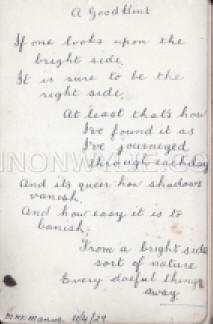 A Good Hint
If one looks upon the
bright side
It is sure to be the
right side
At least that's how
I've found it as
I've journeyed
through each day
And its queer how shadows
vanish,
And how easy it is to
banish
From a bright side
sort of nature
Every doleful thing
away.
11/4/29